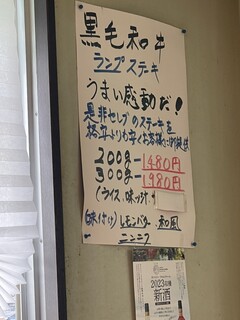 黒毛和牛
ランプステーキ
うまい感動だ!
是非セレブのステーキを
200g 1480円
300g 1980円
(ライス、味ソ汁
(味付け) レモンバター 和風
ニンニク
2023年
新酒